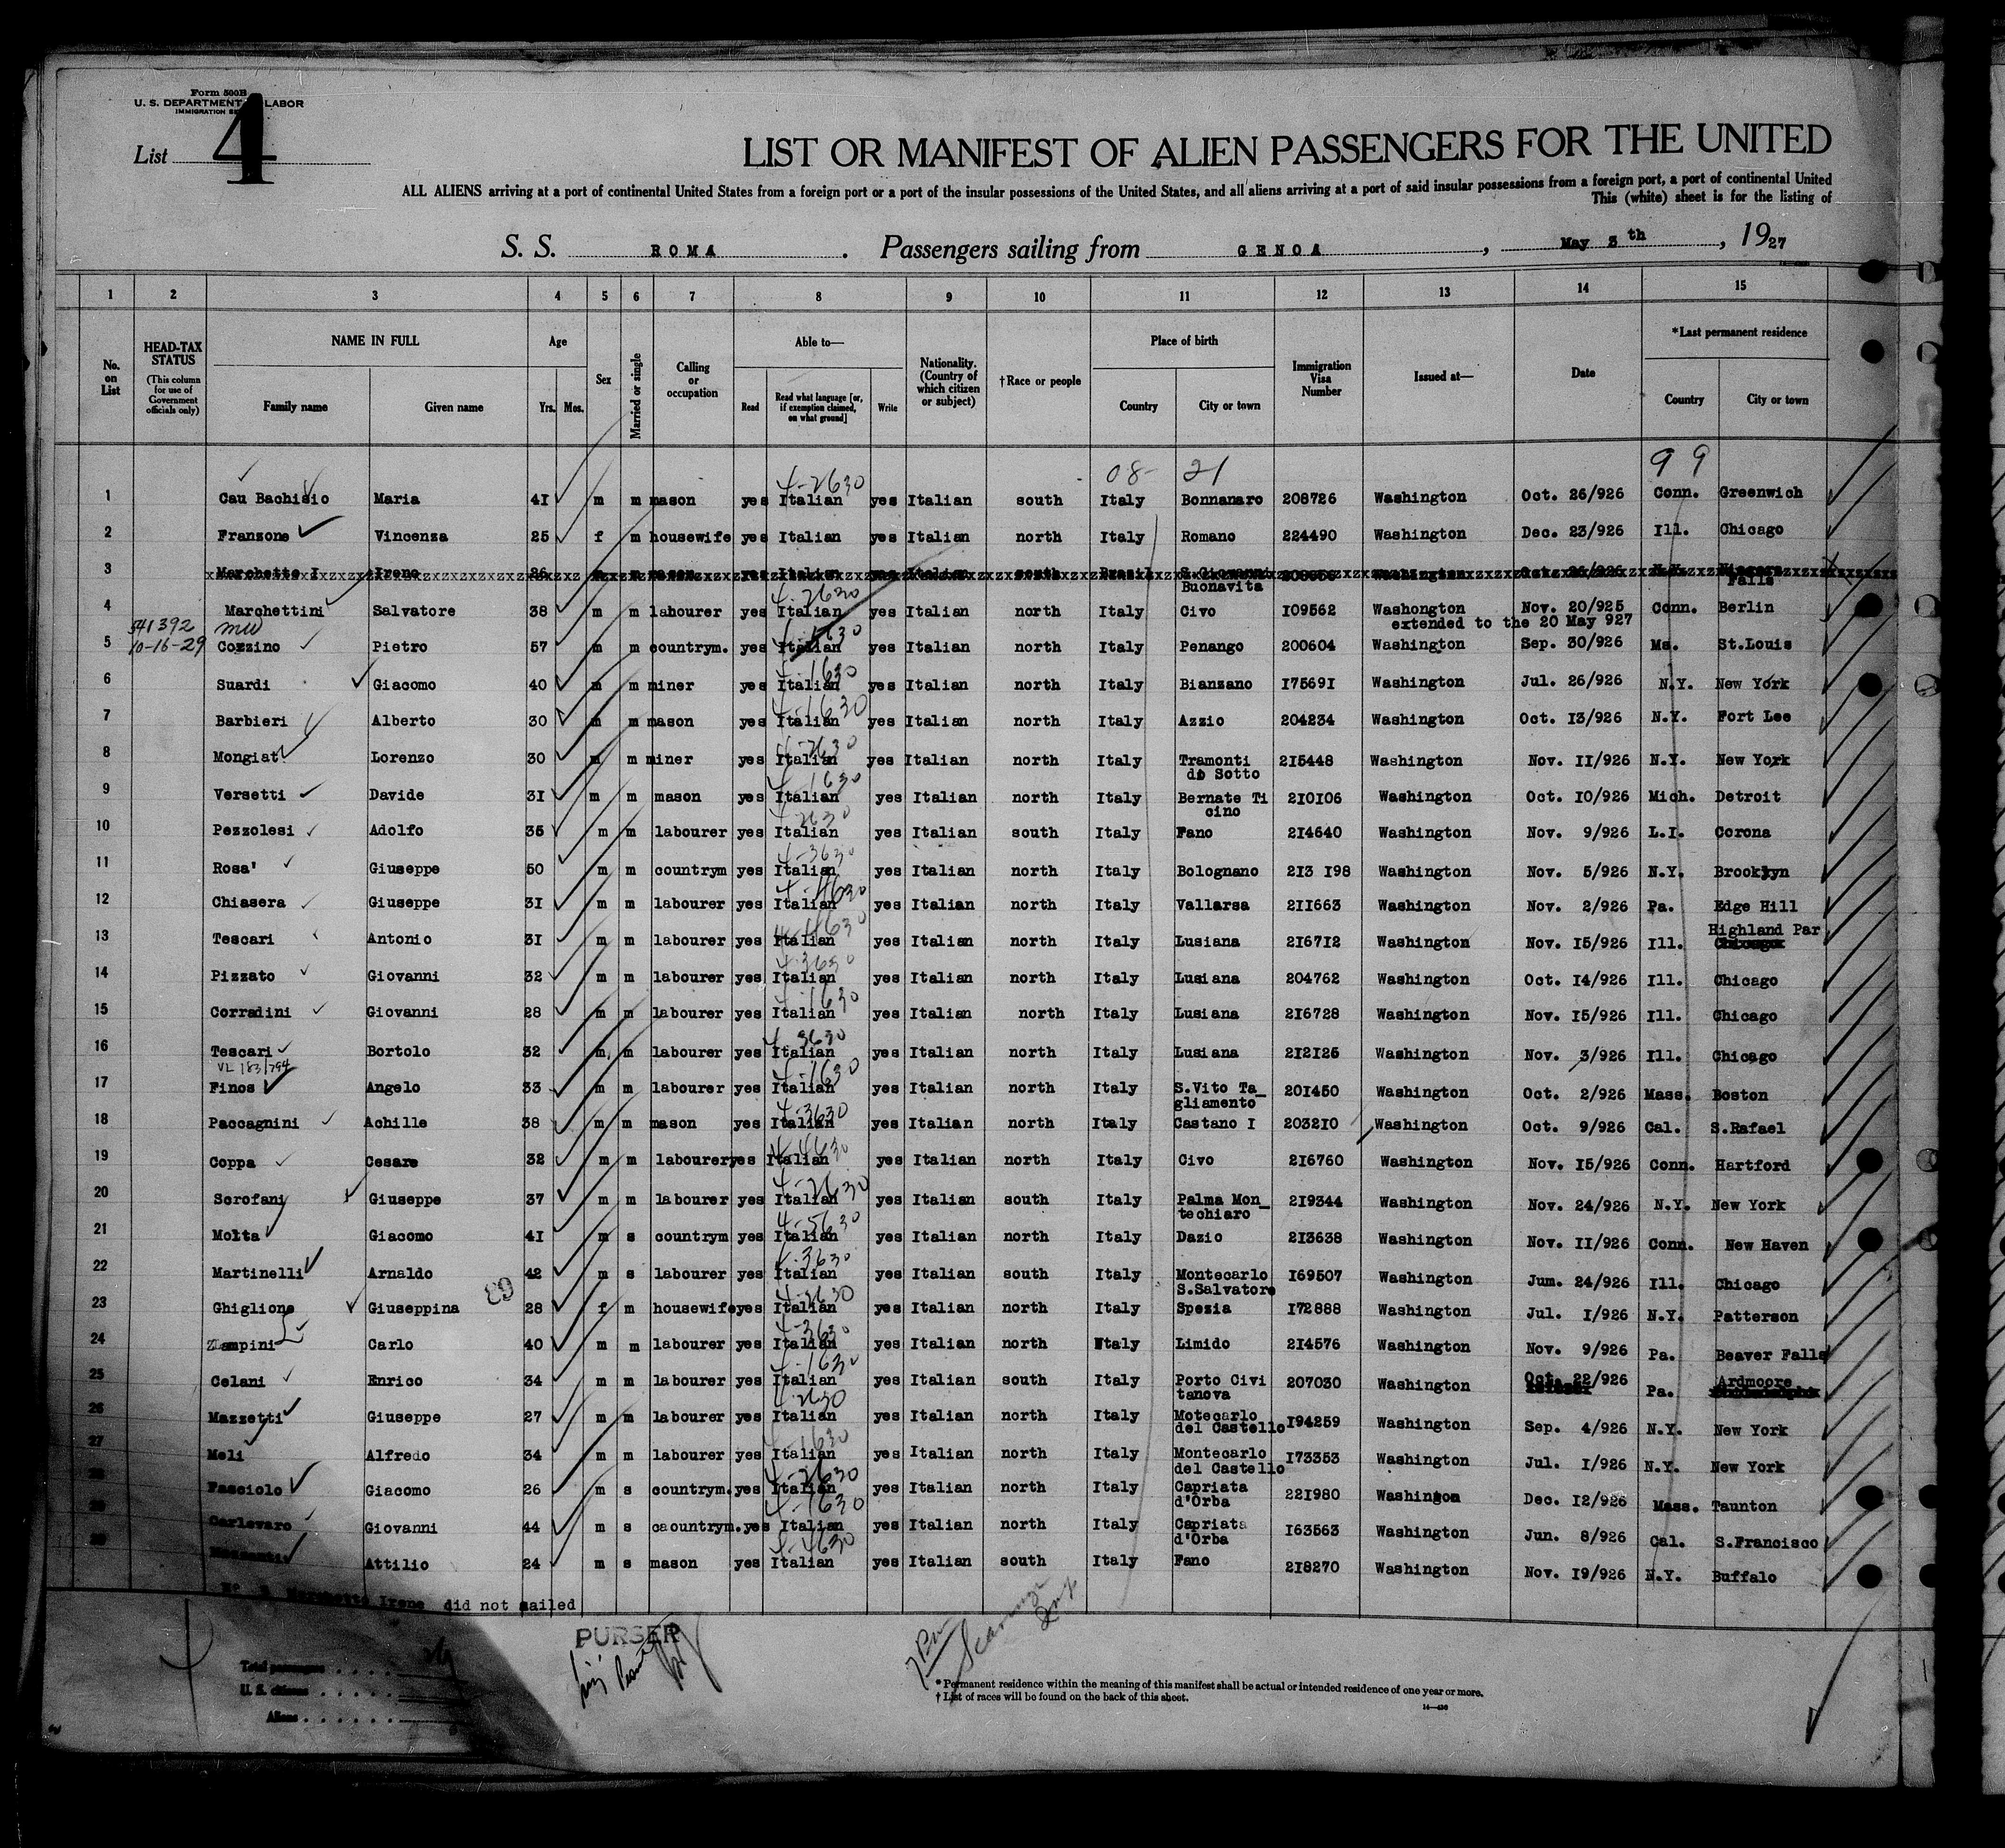 Form 500B
U. S. DEPARTMENT LABOR
IMMIGRATION
List 4
LIST OR MANIFEST OF ALIEN PASSENGERS FOR THE UNITED
ALL ALIENS arriving at a port of continental United States from a foreign port or a port of the insular possessions of the United States, and all aliens arriving at a port of said insular possessions from a foreign port, a port of continental United
This (white) sheet is for the listing of
S. S. ROMA . Passengers sailing from GENOA , May 3th , 1927
1 2 3 4 5 6 7 8 9 10 11 12 13 14 15
No. on List HEAD-TAX STATUS (This column for use of Government officials only) NAME IN FULL Family name Given name Age Yrs. Mos. Sex Married or single Calling or occupation Able to— Read Read what language [or, if exemption claimed, on what ground] Write Nationality. (Country of which citizen or subject) †Race or people Place of birth Country City or town Immigration Visa Number Issued at— Date *Last permanent residence Country City or town
4-2630 08- 21 99
1 Cau Bachisio Maria 41 m m mason yes Italian yes Italian south Italy Bonnanaro 208726 Washington Oct. 26/926 Conn. Greenwich
2 Franzone Vincenza 25 f m housewife yes Italian yes Italian north Italy Romano 224490 Washington Dec. 23/926 Ill. Chicago
3 Marchetto I Irene 26 Italian Italian south Brasil S.Giovanni Washington N.Y. Niagara
Buonavita Falls
4-2630
4 Marchettini Salvatore 38 m m labourer yes Italian yes Italian north Italy Civo 109562 Washongton Nov. 20/925 Conn. Berlin
extended to the 20 May 927
541392
10-16-29
5 Cozzino Pietro 57 m m countrym. yes Italian yes Italian north Italy Penango 200604 Washington Sep. 30/926 Ms. St.Louis
4-1630
6 Suardi Giacomo 40 m m miner yes Italian yes Italian north Italy Bianzano 175691 Washington Jul. 26/926 N.Y. New York
4-1630
7 Barbieri Alberto 30 m m mason yes Italian yes Italian north Italy Azzio 204234 Washington Oct. 13/926 N.Y. Fort Lee
4-2630
8 Mongiat Lorenzo 30 m m miner yes Italian yes Italian north Italy Tramonti 215448 Washington Nov. 11/926 N.Y. New York
di Sotto
4-1630
9 Versetti Davide 31 m m mason yes Italian yes Italian north Italy Bernate Ti 210106 Washington Oct. 10/926 Mich. Detroit
cino
4-2630
10 Pezzolesi Adolfo 35 m m labourer yes Italian yes Italian south Italy Fano 214640 Washington Nov. 9/926 L.I. Corona
4-3630
11 Rosa' Giuseppe 50 m m countrym yes Italian yes Italian north Italy Bolognano 213 198 Washington Nov. 5/926 N.Y. Brooklyn
4-4630
12 Chiasera Giuseppe 31 m m labourer yes Italian yes Italian north Italy Vallarsa 211663 Washington Nov. 2/926 Pa. Edge Hill
4-4630 Highland Par
13 Tescari Antonio 31 m m labourer yes Italian yes Italian north Italy Lusiana 216712 Washington Nov. 15/926 Ill. Chicago
4-3630
14 Pizzato Giovanni 32 m m labourer yes Italian yes Italian north Italy Lusiana 204762 Washington Oct. 14/926 Ill. Chicago
4-1630
15 Corradini Giovanni 28 m m labourer yes Italian yes Italian north Italy Lusiana 216728 Washington Nov. 15/926 Ill. Chicago
4-3630
16 Tescari Bortolo 32 m m labourer yes Italian yes Italian north Italy Lusiana 212125 Washington Nov. 3/926 Ill. Chicago
VL 183/794 4-1630
17 Finos Angelo 33 m m labourer yes Italian yes Italian north Italy S.Vito Ta_ 201450 Washington Oct. 2/926 Mass. Boston
gliamento
4-3630
18 Paccagnini Achille 38 m m mason yes Italian yes Italian north Italy Castano I 203210 Washington Oct. 9/926 Cal. S.Rafael
4-4630
19 Coppa Cesare 32 m m labourer yes Italian yes Italian north Italy Civo 216760 Washington Nov. 15/926 Conn. Hartford
4-2630
20 Scrofani Giuseppe 37 m m labourer yes Italian yes Italian south Italy Palma Mon_ 219344 Washington Nov. 24/926 N.Y. New York
techiaro
4-5630
21 Molta Giacomo 41 m s countrym yes Italian yes Italian north Italy Dazio 213638 Washington Nov. 11/926 Conn. New Haven
4-3630
22 Martinelli Arnaldo 42 m s labourer yes Italian yes Italian south Italy Montecarlo 169507 Washington Jum. 24/926 Ill. Chicago
S.Salvatore
4-2630
23 Ghiglione Giuseppina 28 f m housewife yes Italian yes Italian north Italy Spezia 172888 Washington Jul. 1/926 N.Y. Patterson
4-3630
24 Zampini Carlo 40 m m labourer yes Italian yes Italian north Italy Limido 214576 Washington Nov. 9/926 Pa. Beaver Falls
4-1630
25 Celani Enrico 34 m m labourer yes Italian yes Italian south Italy Porto Civi 207030 Washington Oct. 22/926 Pa. Ardmoore
tanova
4-2630
26 Mazzetti Giuseppe 27 m m labourer yes Italian yes Italian north Italy Motecarlo 194259 Washington Sep. 4/926 N.Y. New York
del Castello
4-1630
27 Meli Alfredo 34 m m labourer yes Italian yes Italian north Italy Montecarlo 173353 Washington Jul. 1/926 N.Y. New York
del Castello
4-2630
28 Fasciolo Giacomo 26 m s countrym. yes Italian yes Italian north Italy Capriata 221980 Washington Dec. 12/926 Mass. Taunton
d'Orba
4-1630
29 Carlevaro Giovanni 44 m s caountrym. yes Italian yes Italian north Italy Capriata 163563 Washington Jun. 8/926 Cal. S.Francisco
d'Orba
4-4630
Attilio 24 m s mason yes Italian yes Italian south Italy Fano 218270 Washington Nov. 19/926 N.Y. Buffalo
N° 3 Marchetto Irene did not sailed
PURSER
Total passengers
U. S. citizens
Aliens
* Permanent residence within the meaning of this manifest shall be actual or intended residence of one year or more.
† List of races will be found on the back of this sheet.